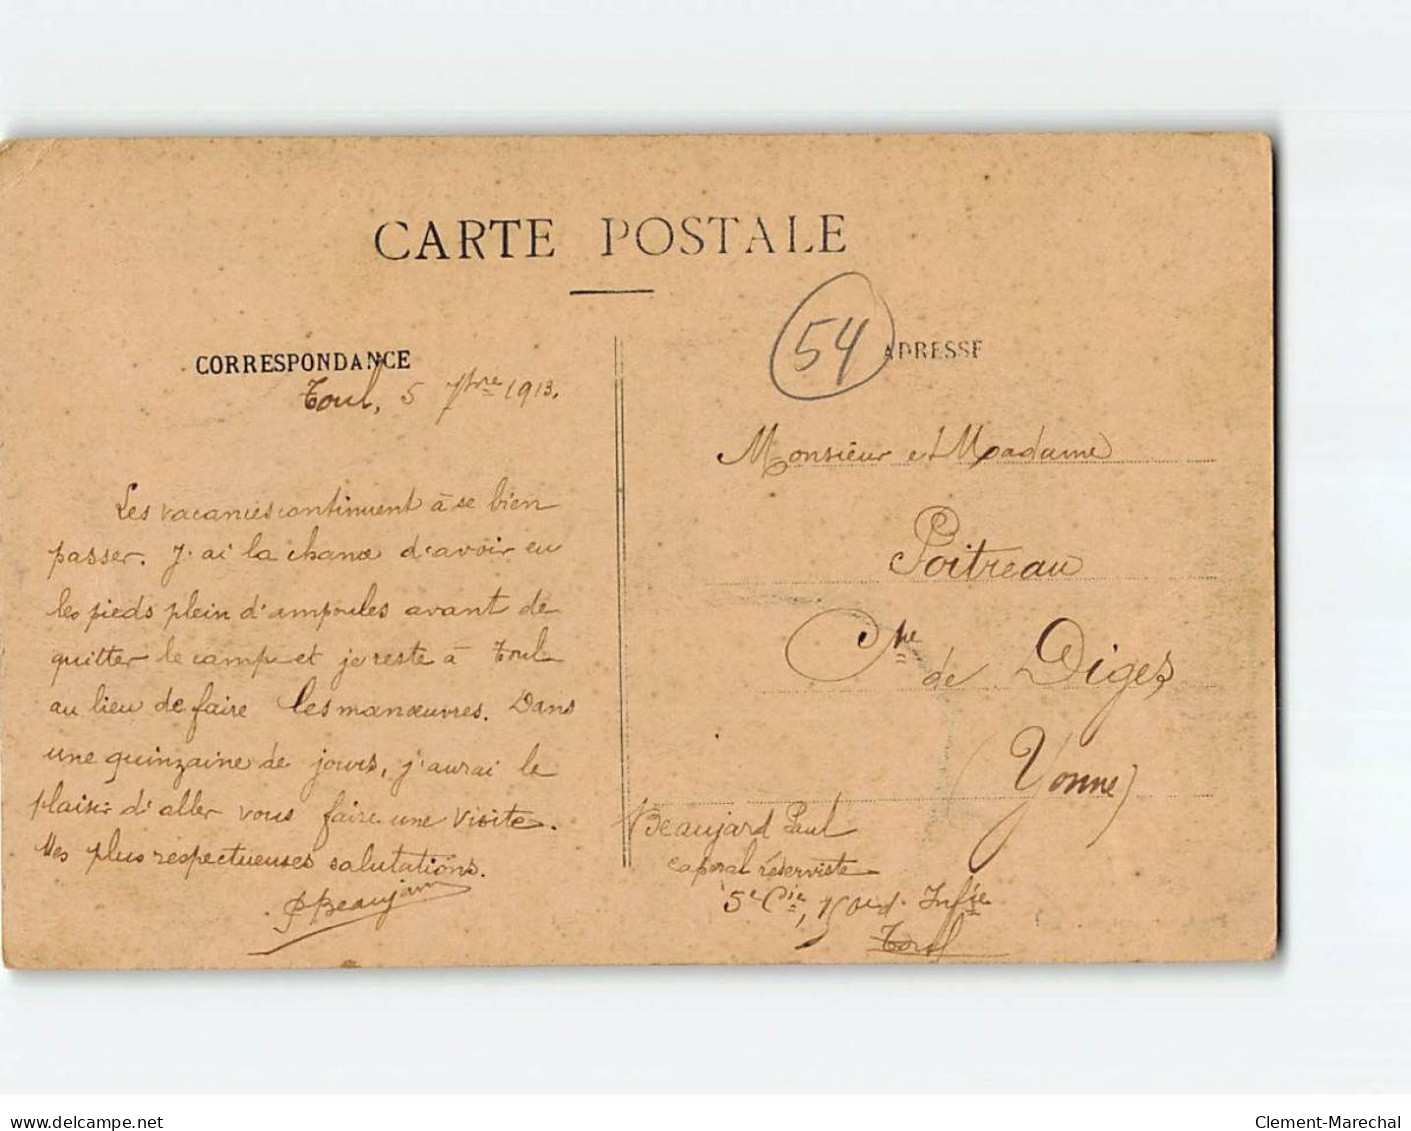 CARTE POSTALE
54
CORRESPONDANCE
ADRESSE
Toul, 5 7bre 1913.
Les vacances continuent à se bien
passer. J'ai la chance d'avoir eu
les pieds plein d'ampoules avant de
quitter le camp et je reste à Toul
au lieu de faire les manœuvres. Dans
une quinzaine de jours, j'aurai le
plaisir d'aller vous faire une visite.
Mes plus respectueuses salutations.
PBeaujard
Monsieur et Madame
Poitreau
Cne de Diges
(Yonne)
Beaujard Paul
caporal réserviste
5e Cie, d'Infie
Toul
www.delcampe.net
Clement-Marechal